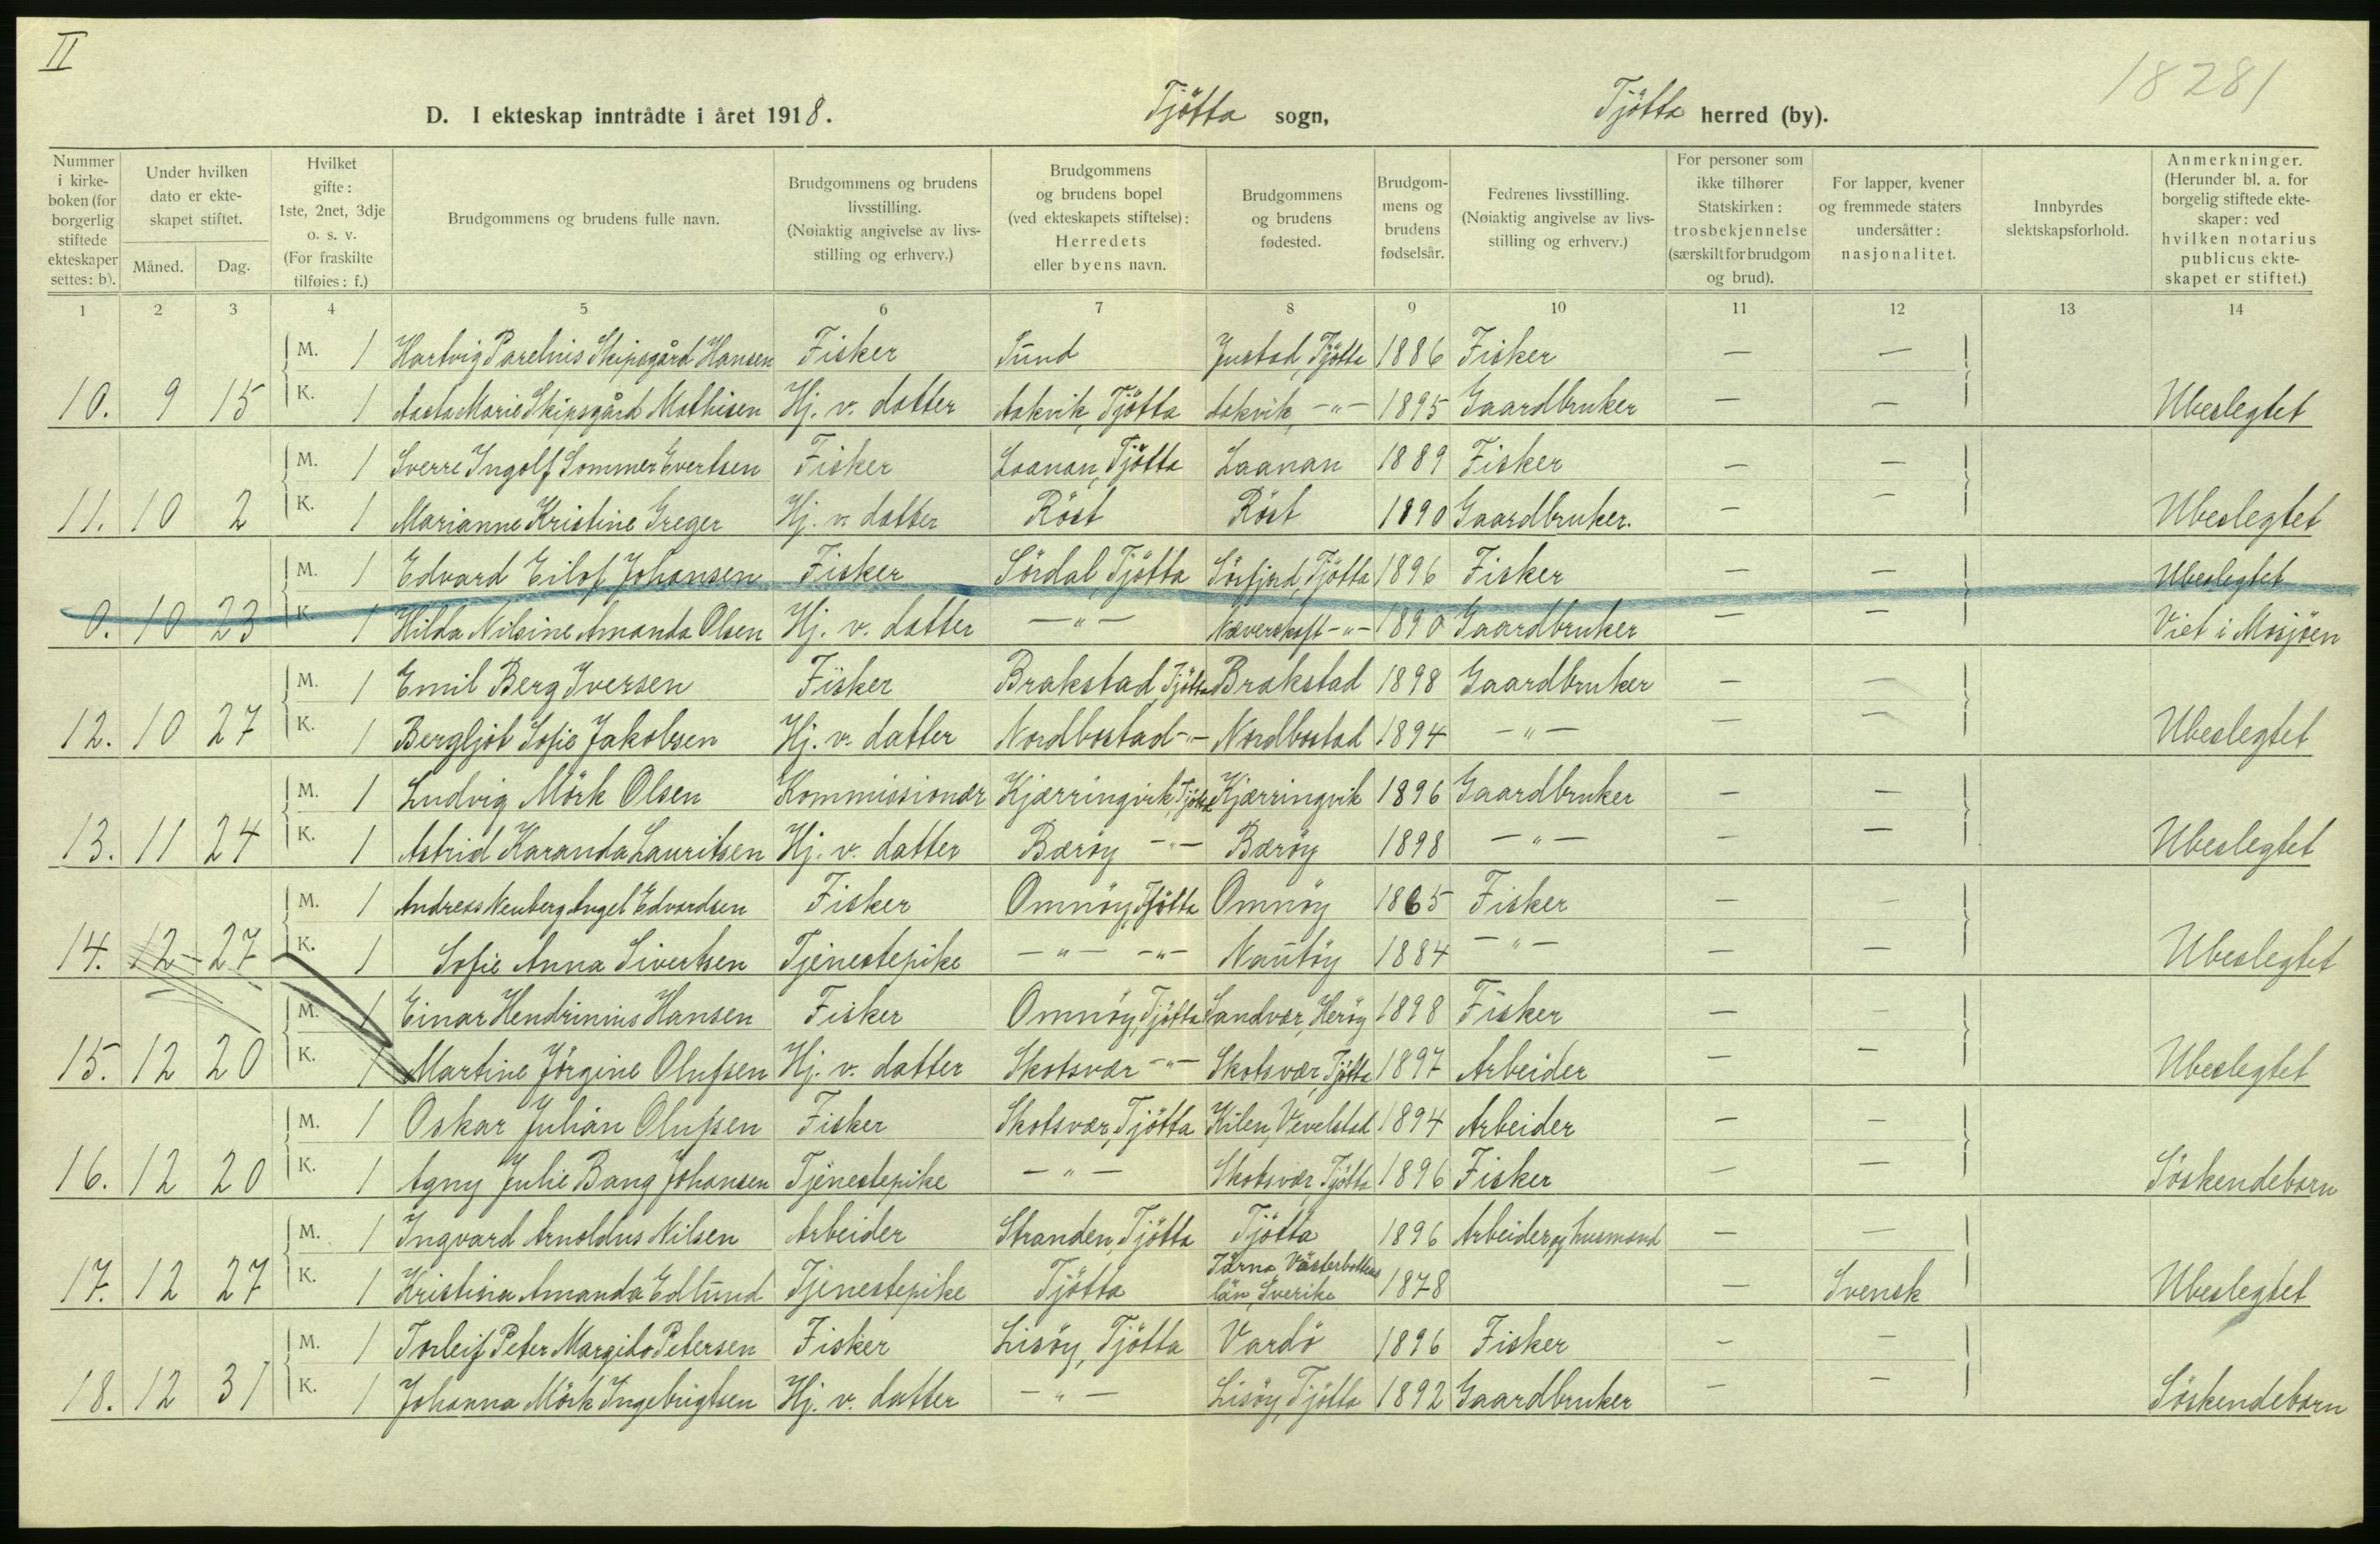 II
18281
D. I ekteskap inntrådte i året 1918. Tjötta sogn, Tjötta herred (by).
Nummer i kirke-boken (for borgerlig stiftede ekteskaper settes: b).
Under hvilken dato er ekte-skapet stiftet.
Måned. Dag.
Hvilket gifte: 1ste, 2net, 3dje o. s. v. (For fraskilte tilføies: f.)
Brudgommens og brudens fulle navn.
Brudgommens og brudens livsstilling. (Nøiaktig angivelse av livs-stilling og erhverv.)
Brudgommens og brudens bopel (ved ekteskapets stiftelse): Herredets eller byens navn.
Brudgommens og brudens fødested.
Brudgom-mens og brudens fødselsår.
Fedrenes livsstilling. (Nøiaktig angivelse av livs-stilling og erhverv.)
For personer som ikke tilhører Statskirken: trosbekjennelse (særskilt for brudgom og brud).
For lapper, kvener og fremmede staters undersåtter: nasjonalitet.
Innbyrdes slektskapsforhold.
Anmerkninger. (Herunder bl. a. for borgelig stiftede ekte-skaper: ved hvilken notarius publicus ekte-skapet er stiftet.)
1 2 3 4 5 6 7 8 9 10 11 12 13 14
M. 1 Hartvig Parelius Skipsgård Hansen Fisker Sund Justad, Tjötta 1886 Fisker — —
10. 9 15 K. 1 Aasta Marie Skipsgård Mathisen Hj. v. datter Aakvik, Tjötta Aakvik, -"- 1895 Gaardbruker — — Ubeslegtet
M. 1 Sverre Ingolf Sommer Evertsen Fisker Laanan, Tjötta Laanan 1889 Fisker — —
11. 10 2 K. 1 Marianne Kristine Greger Hj. v. datter Röst Röst 1890 Gaardbruker. — — Ubeslegtet
M. 1 Edvard Eilof Johansen Fisker Sördal, Tjötta Sörfjord, Tjötta 1896 Fisker — — Ubeslegtet
0. 10 23 K. 1 Hilda Nilsine Amanda Olsen Hj. v. datter -"- Næverskaft -"- 1890 Gaardbruker — — Viet i Mosjöen
M. 1 Emil Berg Iversen Fisker Brakstad, Tjötta Brakstad 1898 Gaardbruker — —
12. 10 27 K. 1 Bergljot Sofie Jakobsen Hj. v. datter Nordbostad -"- Nordbostad 1894 -"- — — Ubeslegtet
M. 1 Ludvig Mörk Olsen Kommissionær Kjærringvik, Tjötta Kjærringvik 1896 Gaardbruker — —
13. 11 24 K. 1 Astrid Karanda Lauritsen Hj. v. datter Bæröy -"- Bæröy 1898 -"- — — Ubeslegtet
M. 1 Andreas Neuberg Angel Edvardsen Fisker Omnöy, Tjötta Omnöy 1865 Fisker — —
14. 12 - 27 K. 1 Sofie Anna Sivertsen Tjenestepike -"- -"- Nautöy 1884 -"- — — Ubeslegtet
M. 1 Einar Hendrinius Hansen Fisker Omnöy, Tjötta Sandvær, Heröy 1898 Fisker — —
15. 12 20 K. 1 Martine Jörgine Olufsen Hj. v. datter Skotsvær -"- Skotsvær, Tjötta 1897 Arbeider — — Ubeslegtet
M. 1 Oskar Julian Olufsen Fisker Skotsvær, Tjötta Kilen, Vevelstad 1894 Arbeider — —
16. 12 20 K. 1 Agny Julie Bang Johansen Tjenestepike -"- Skotsvær, Tjötta 1896 Fisker — — Söskendebarn
M. 1 Ingvard Arnoldus Nilsen Arbeider Stranden, Tjötta Tjötta 1896 Arbeider og husmand — —
17. 12 27 K. 1 Kristina Amanda Edlund Tjenestepike Tjötta Tärna, Västerbottens län, Sverike 1878 — Svensk Ubeslegtet
M. 1 Torleif Peter Margido Petersen Fisker Lisöy, Tjötta Vardö 1896 Fisker — —
18. 12 31 K. 1 Johanna Mörk Ingebrigtsen Hj. v. datter -"- Lisöy, Tjötta 1892 Gaardbruker — — Söskendebarn